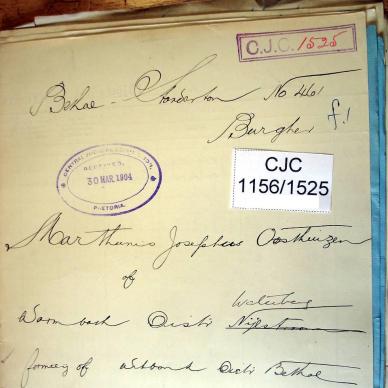 C.J.C. 1525
Bethal - Standerton No 461
Burgher f.1
CENTRAL JUDICIAL COM
RECEIVED.
30 MAR. 1904
PRETORIA
CJC
1156/1525
Marthinus Josephus Oosthuizen
of
Waterberg
Warmbath Distr
formerly of Witbank Distr Bethal